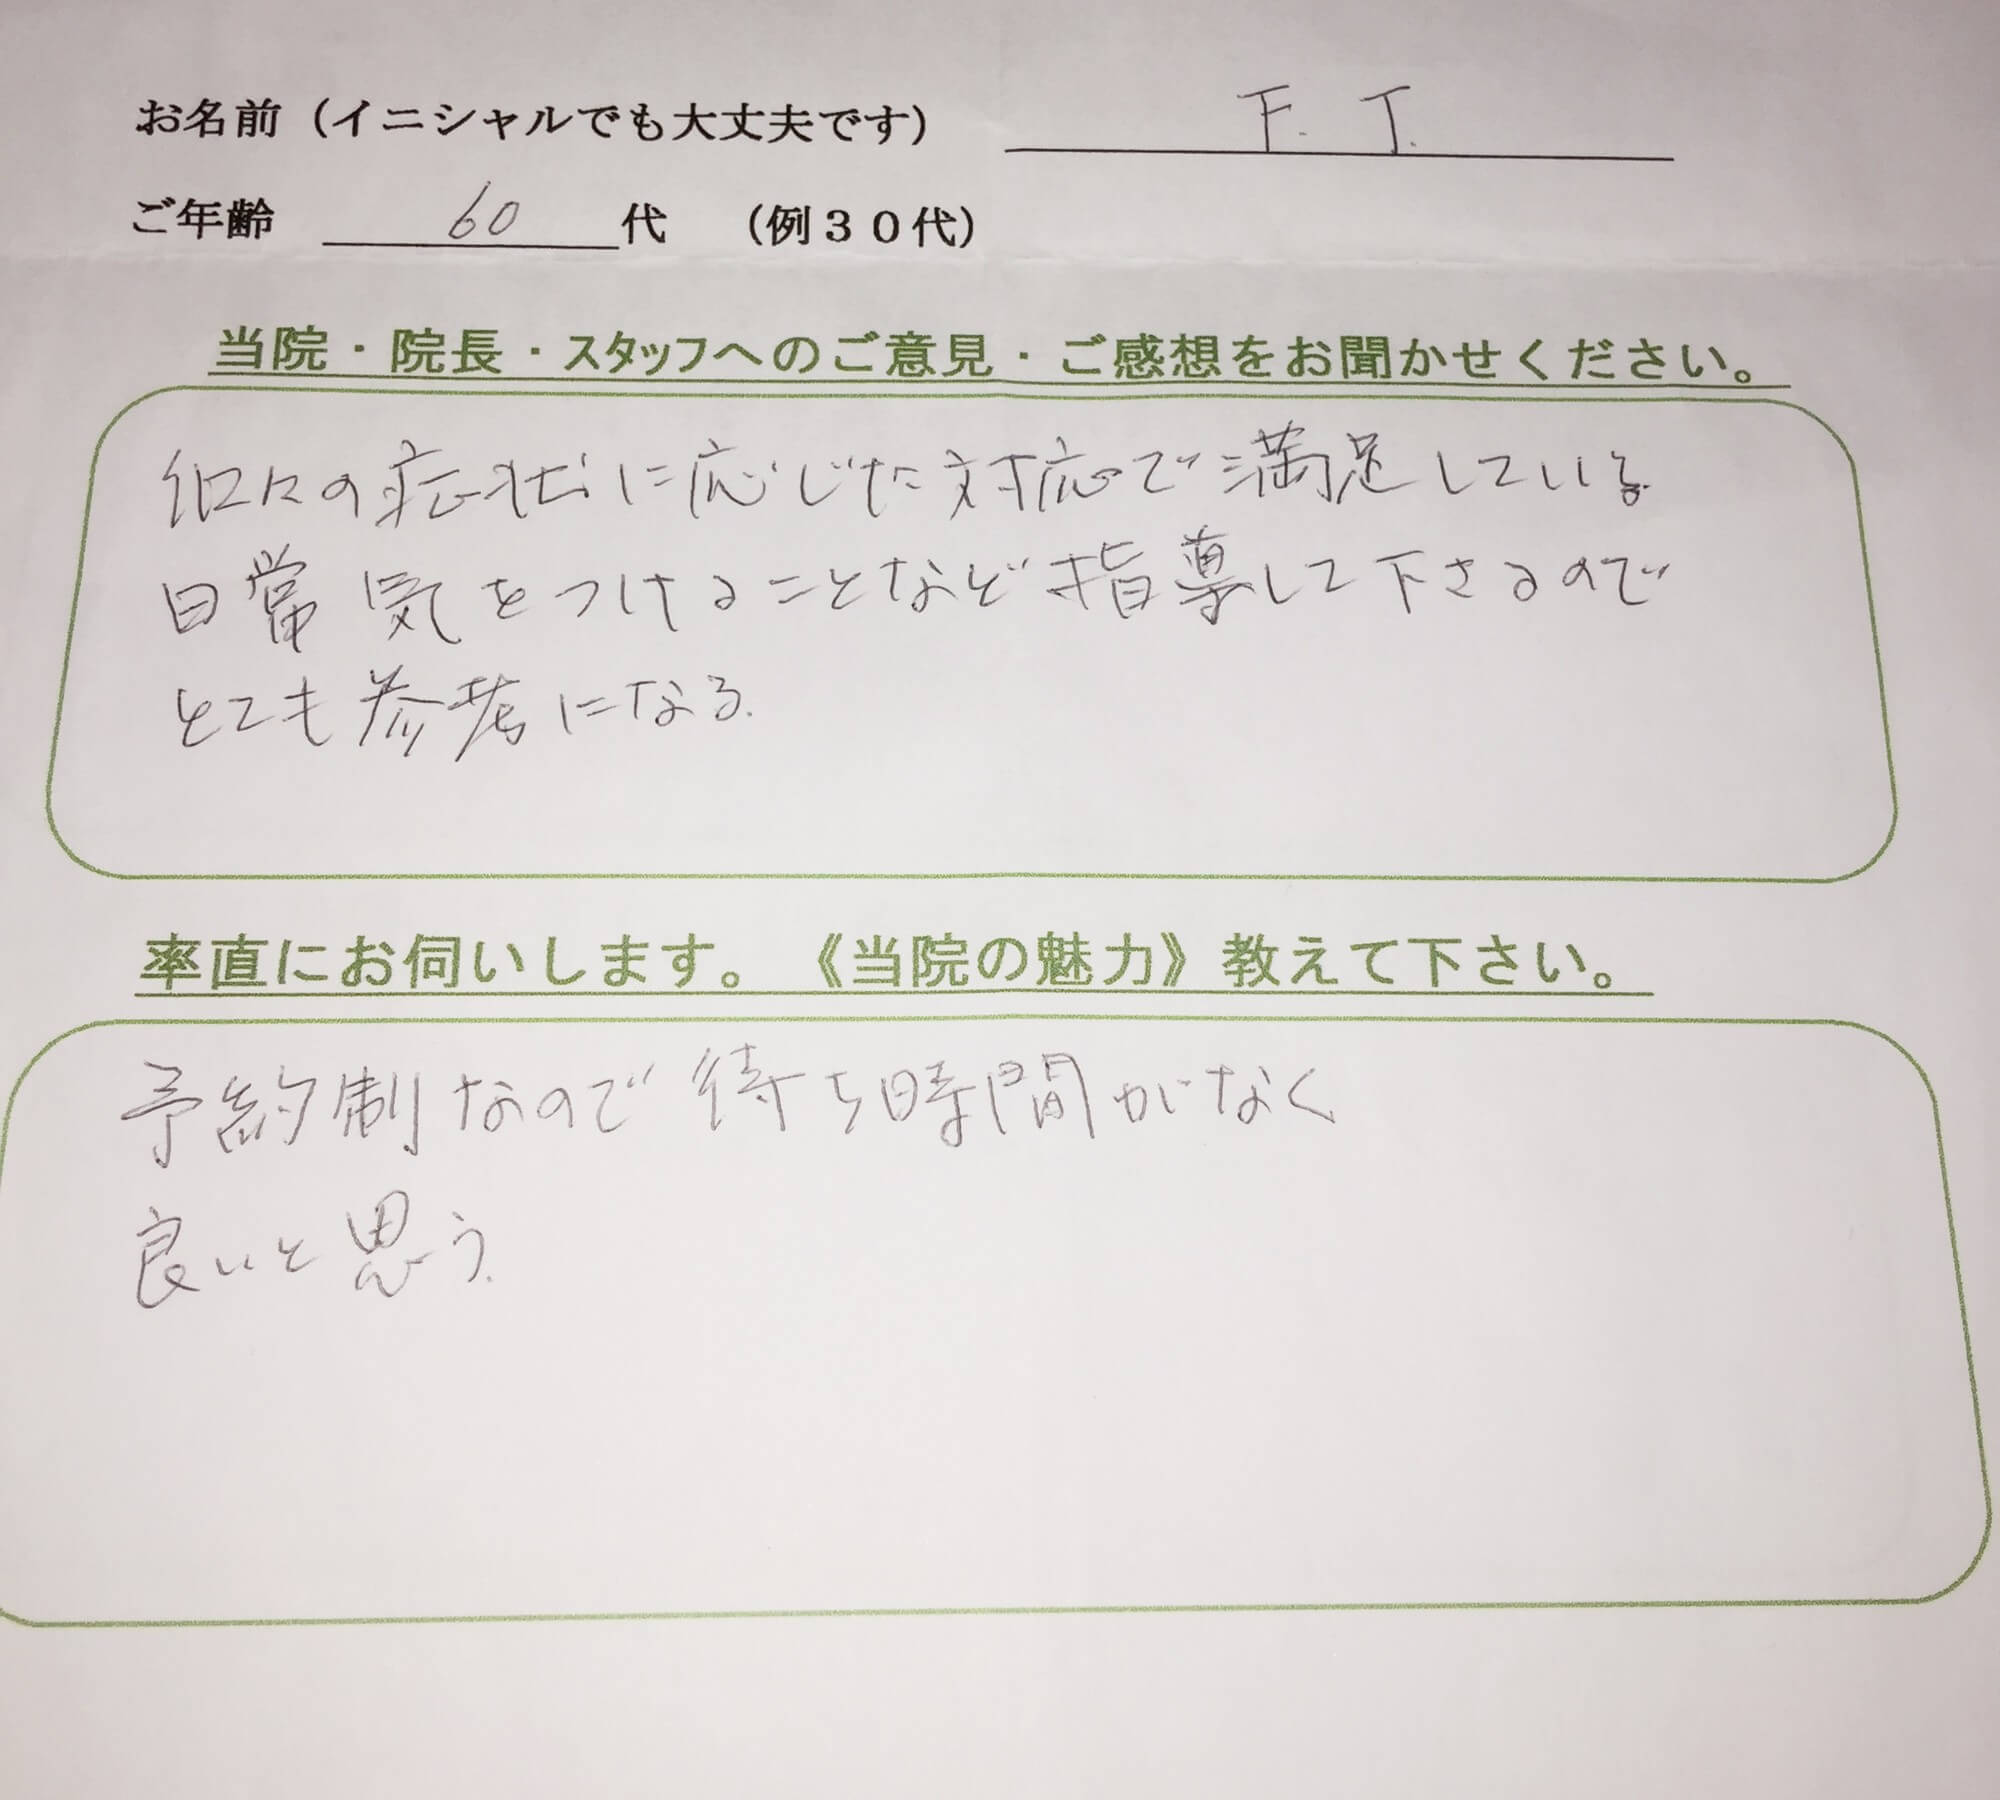 お名前（イニシャルでも大丈夫です） F. T.
ご年齢 60 代 （例３０代）
当院・院長・スタッフへのご意見・ご感想をお聞かせください。
個々の症状に応じた対応で満足している。
日常気をつけることなど指導して下さるので
とても参考になる.
率直にお伺いします。《当院の魅力》教えて下さい。
予約制なので待ち時間がなく
良いと思う.